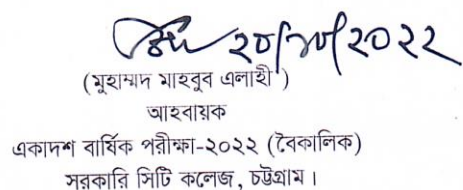 ২০/১০/২০২২
(মুহাম্মদ মাহবুব এলাহী)
আহবায়ক
একাদশ বার্ষিক পরীক্ষা-২০২২ (বৈকালিক)
সরকারি সিটি কলেজ, চট্টগ্রাম।